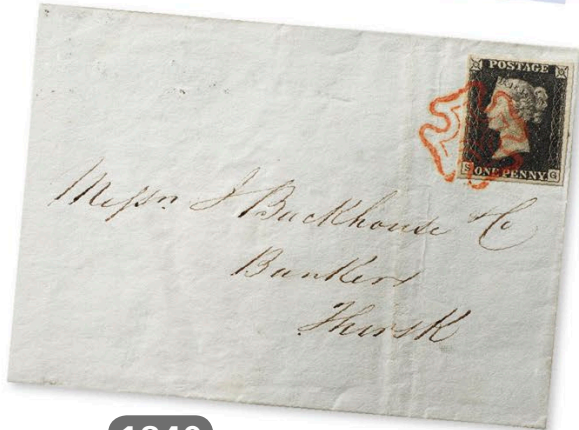 POSTAGE
S ONE PENNY G
Messrs J Backhouse & Co
Bankers
Thirsk
1840